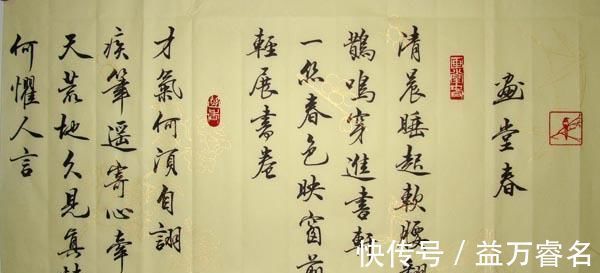 畫堂春
清晨睡起軟腰
鵲鳴穿進書軒
一丝春色映窗前
輕展書卷
才氣何須自詡
疾筆遥寄心牽
天荒地久見真情
何懼人言
快传号 / 益万睿名